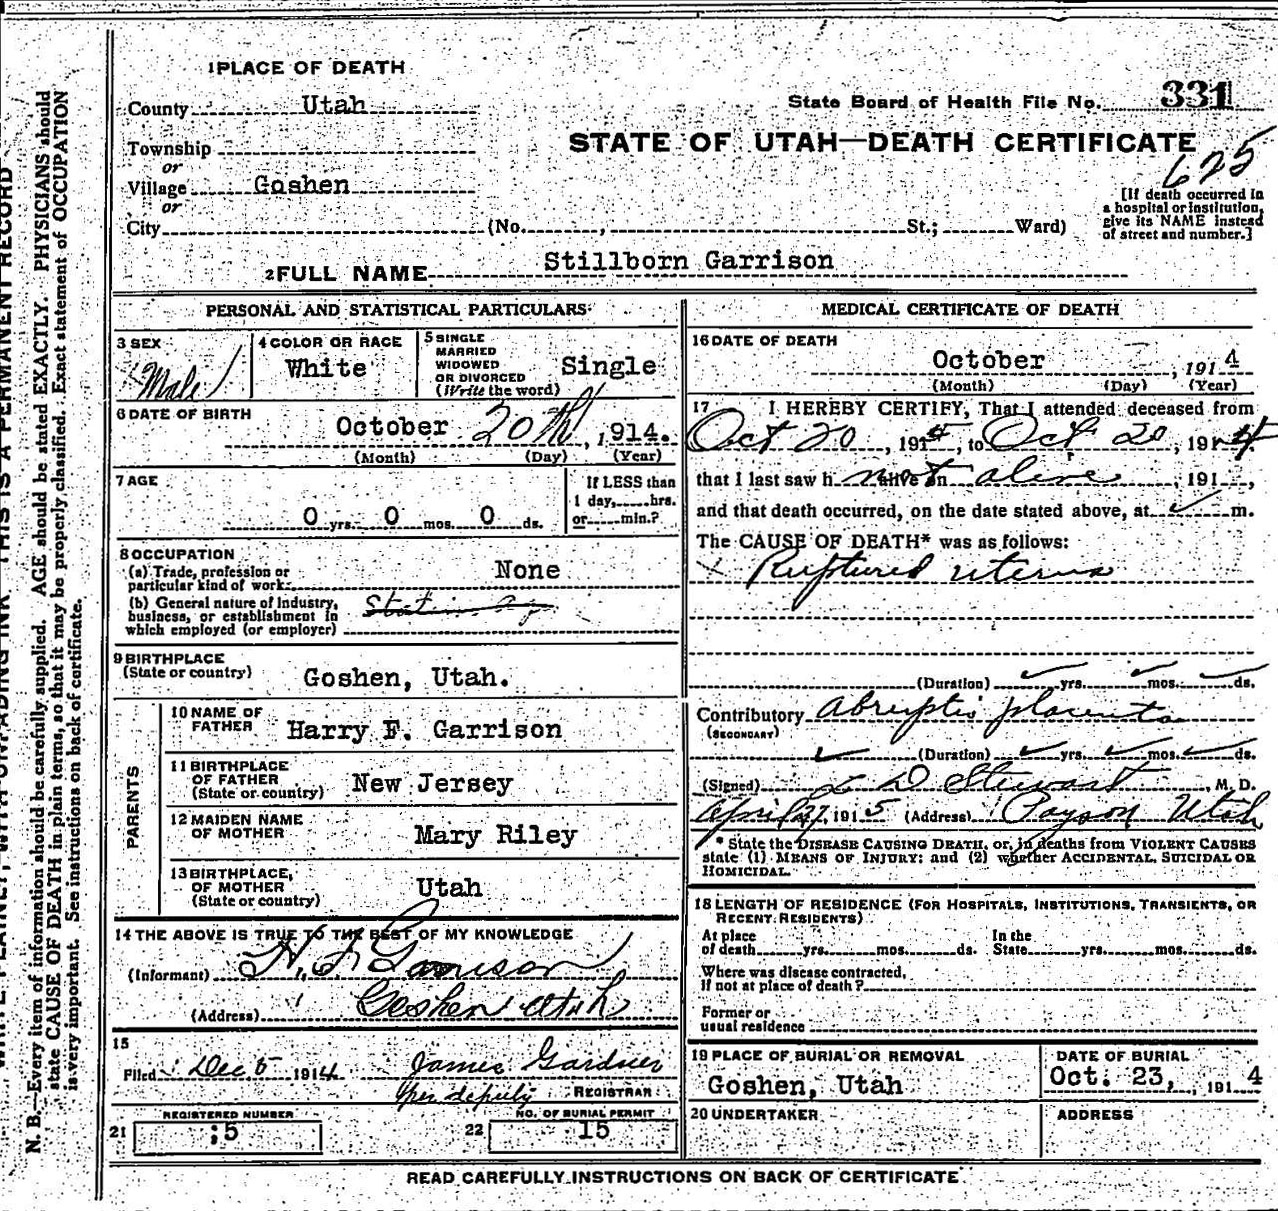 1 PLACE OF DEATH
County Utah
State Board of Health File No. 331
STATE OF UTAH—DEATH CERTIFICATE
625
Township
or
Village Goshen
or
City (No. , St.; Ward)
[If death occurred in
a hospital or institution,
give its NAME instead
of street and number.]
2 FULL NAME Stillborn Garrison
PERSONAL AND STATISTICAL PARTICULARS
3 SEX
Male
4 COLOR OR RACE
White
5 SINGLE
MARRIED
WIDOWED
OR DIVORCED
(Write the word)
Single
6 DATE OF BIRTH
October 20th, 1914.
(Month) (Day) (Year)
7 AGE
0 yrs. 0 mos. 0 ds.
If LESS than
1 day, hrs.
or min.?
8 OCCUPATION
(a) Trade, profession or
particular kind of work None
(b) General nature of industry,
business, or establishment in
which employed (or employer)
9 BIRTHPLACE
(State or country) Goshen, Utah.
PARENTS
10 NAME OF
FATHER Harry F. Garrison
11 BIRTHPLACE
OF FATHER
(State or country) New Jersey
12 MAIDEN NAME
OF MOTHER Mary Riley
13 BIRTHPLACE
OF MOTHER
(State or country) Utah
14 THE ABOVE IS TRUE TO THE BEST OF MY KNOWLEDGE
(Informant) H. F. Garrison
(Address) Goshen Utah
15
Filed Dec 5 1914 James Gardner
per deputy REGISTRAR
REGISTERED NUMBER
21 ;5
NO. OF BURIAL PERMIT
22 15
MEDICAL CERTIFICATE OF DEATH
16 DATE OF DEATH
October , 1914
(Month) (Day) (Year)
17 I HEREBY CERTIFY, That I attended deceased from
Oct 20, 1914, to Oct 20, 1914
that I last saw h not alive on alive, 191 ,
and that death occurred, on the date stated above, at m.
The CAUSE OF DEATH* was as follows:
Ruptured uterus
(Duration) yrs. mos. ds.
Contributory Abruptis placenta
(SECONDARY)
(Duration) yrs. mos. ds.
(Signed) L D Stewart, M. D.
April 27, 1915 (Address) Payson Utah
* State the DISEASE CAUSING DEATH, or, in deaths from VIOLENT CAUSES
state (1) MEANS OF INJURY; and (2) whether ACCIDENTAL, SUICIDAL OR
HOMICIDAL.
18 LENGTH OF RESIDENCE (FOR HOSPITALS, INSTITUTIONS, TRANSIENTS, OR
RECENT RESIDENTS)
At place
of death yrs. mos. ds.
In the
State yrs. mos. ds.
Where was disease contracted,
if not at place of death?
Former or
usual residence
19 PLACE OF BURIAL OR REMOVAL
Goshen, Utah
DATE OF BURIAL
Oct. 23, , 1914
20 UNDERTAKER
ADDRESS
READ CAREFULLY INSTRUCTIONS ON BACK OF CERTIFICATE
N. B.—Every item of information should be carefully supplied. AGE should be stated EXACTLY. PHYSICIANS should
state CAUSE OF DEATH in plain terms, so that it may be properly classified. Exact statement of OCCUPATION
is very important. See instructions on back of certificate.